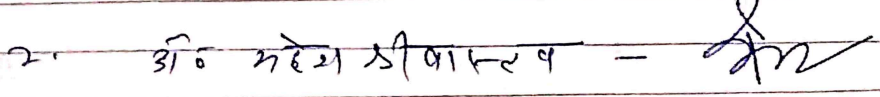 2. डॉ० महेश श्रीवास्तव -